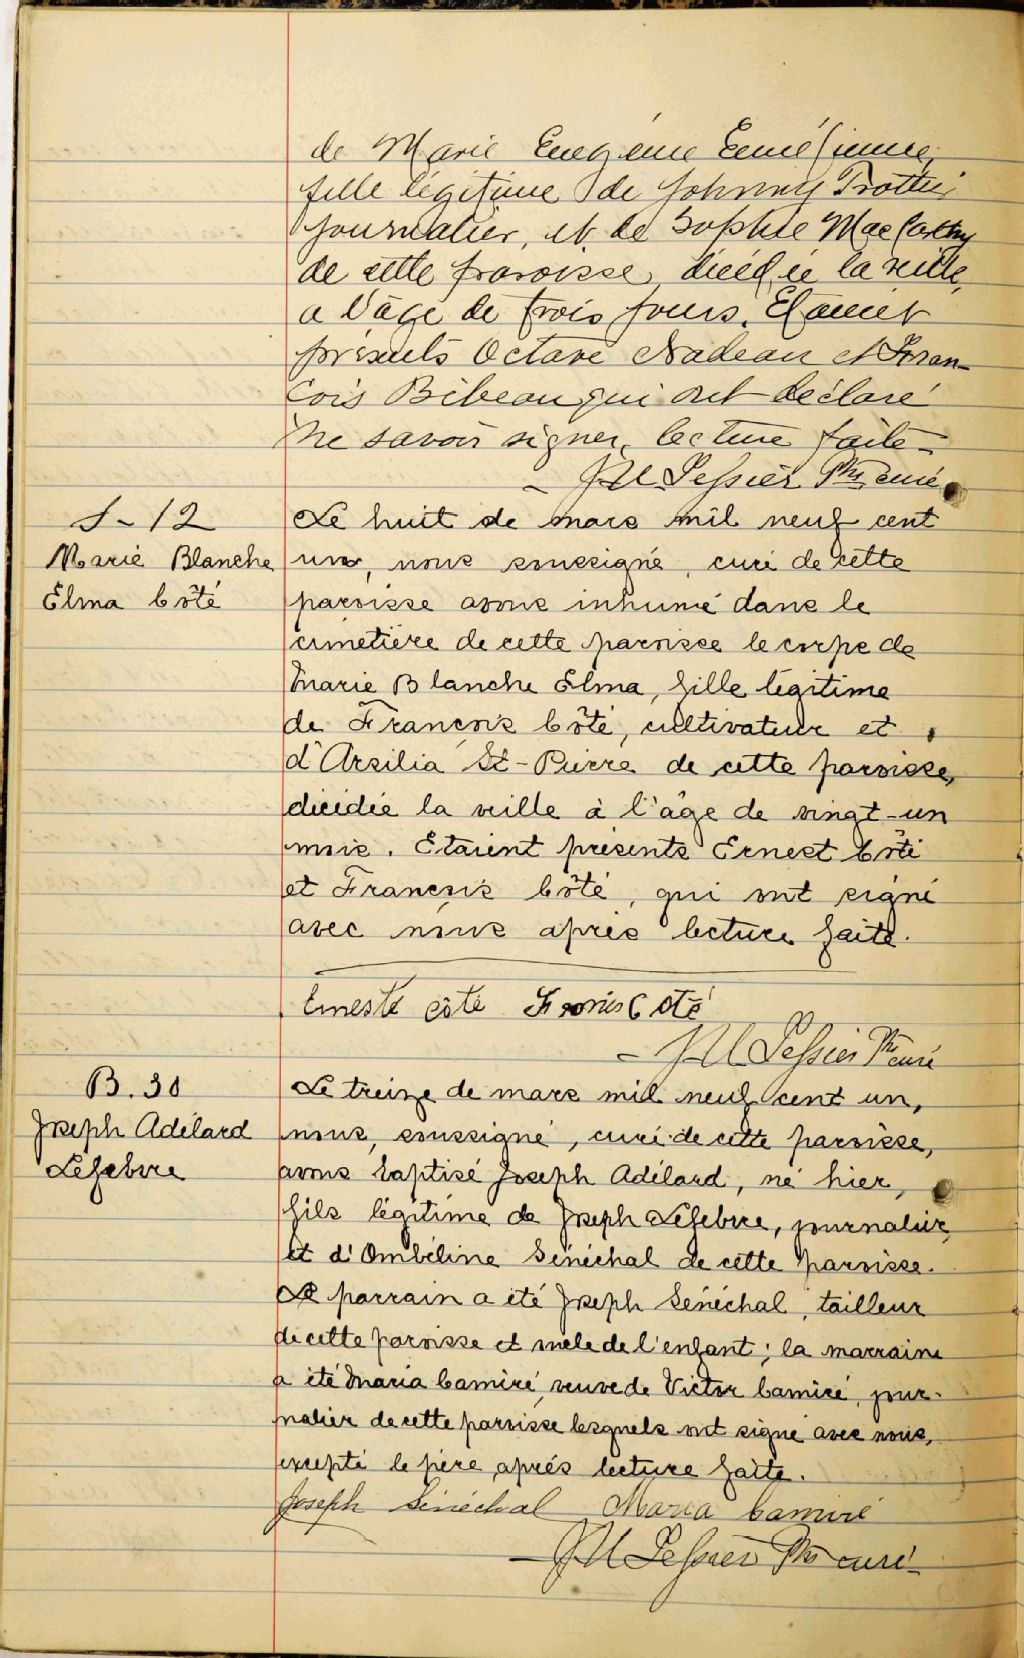 de Marie Eugénie
fille légitime de Johnny Trottier
journalier, et de Sophie MacCarthy
de cette paroisse, décédée la veille,
a l'âge de trois jours. Etaient
présents Octave Nadeau et Fran-
çois Bibeau qui ont déclaré
ne savoir signer, lecture faite.
Tessier Ptre curé
S-12
Marie Blanche
Elma Côté
Le huit de mars mil neuf cent
un, nous soussigné, curé de cette
paroisse avons inhumé dans le
cimetière de cette paroisse le corps de
Marie Blanche Elma, fille légitime
de François Côté, cultivateur et
d'Arsilia St-Pierre de cette paroisse,
décédée la veille à l'âge de vingt-un
mois. Etaient présents Ernest Côté
et François Côté, qui ont signé
avec nous après lecture faite.
Ernest Côté François Coté
Tessier Ptre curé
B. 30
Joseph Adélard
Lefebvre
Le treize de mars mil neuf cent un,
nous, soussigné, curé de cette paroisse,
avons baptisé Joseph Adélard, né hier,
fils légitime de Joseph Lefebvre, journalier,
et d'Ombéline Sénéchal de cette paroisse.
Le parrain a été Joseph Sénéchal, tailleur
de cette paroisse et oncle de l'enfant; la marraine
a été Maria Camiré, veuve de Victor Camiré, jour-
nalier de cette paroisse lesquels ont signé avec nous,
excepté le père, après lecture faite.
Joseph Sénéchal Maria Camiré
Tessier Ptre curé